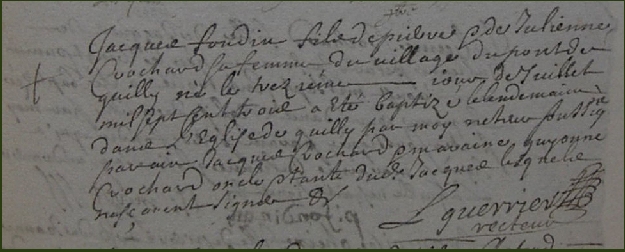 Jacques fondin fils de pierre & de Julienne
Crochard sa femme du village du pont de
quilly né le treziéme jour de Juillet
mil sept cent trois a eté baptizé le lendemain
dans l'Eglise de quilly par moy soussig
parain Jacques Crochard & maraine guyonne
Crochard oncle & tante dudt Jacques lesquels
signer
L guerrier
recteur